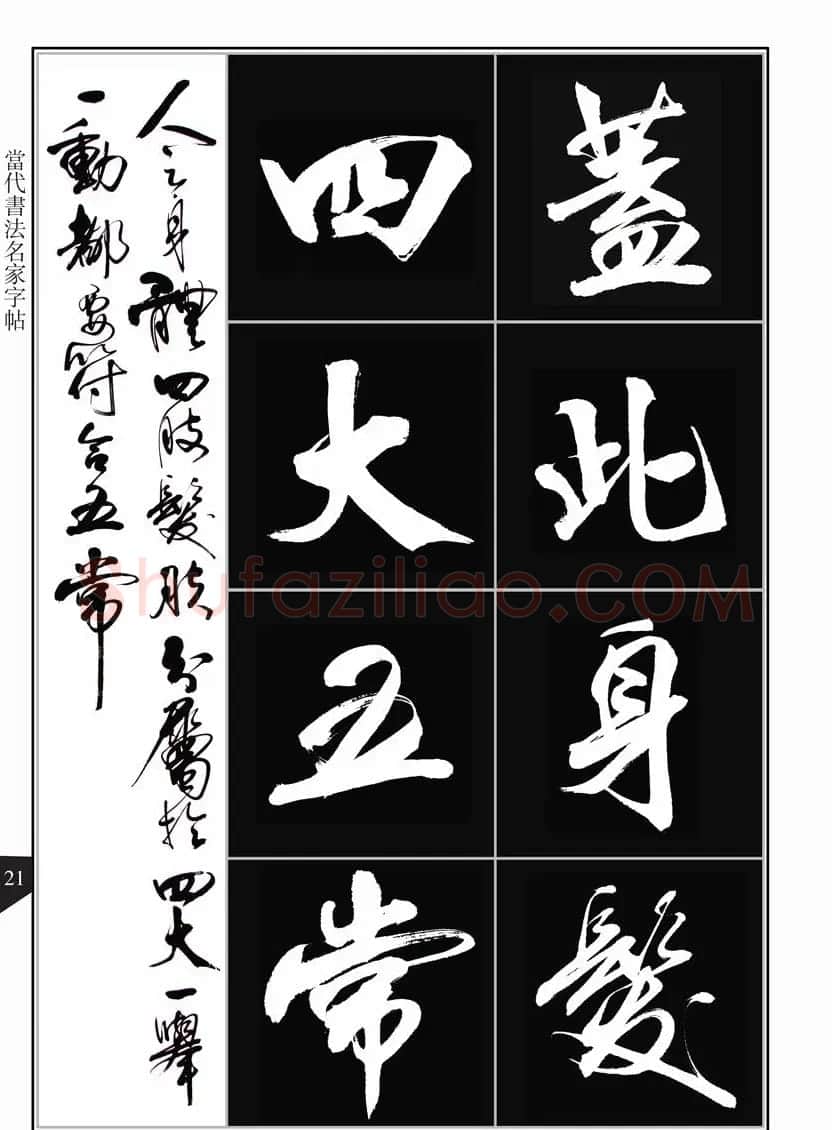 蓋此身髮
四大五常
人之身體四肢髮膚分屬於四大一舉
一動都要符合五常
當代書法名家字帖
21
Shufaziliao.COM